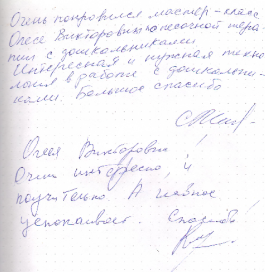 Очень понравился мастер-класс
Олеси Викторовны по песочной тера-
пии с дошкольниками.
Интересная и нужная техно
логия в работе с дошкольни-
ками. Большое спасибо
Олеся Викторовна!
Очень интересно, и
поучительно. А главное
успокаивает. Спасибо